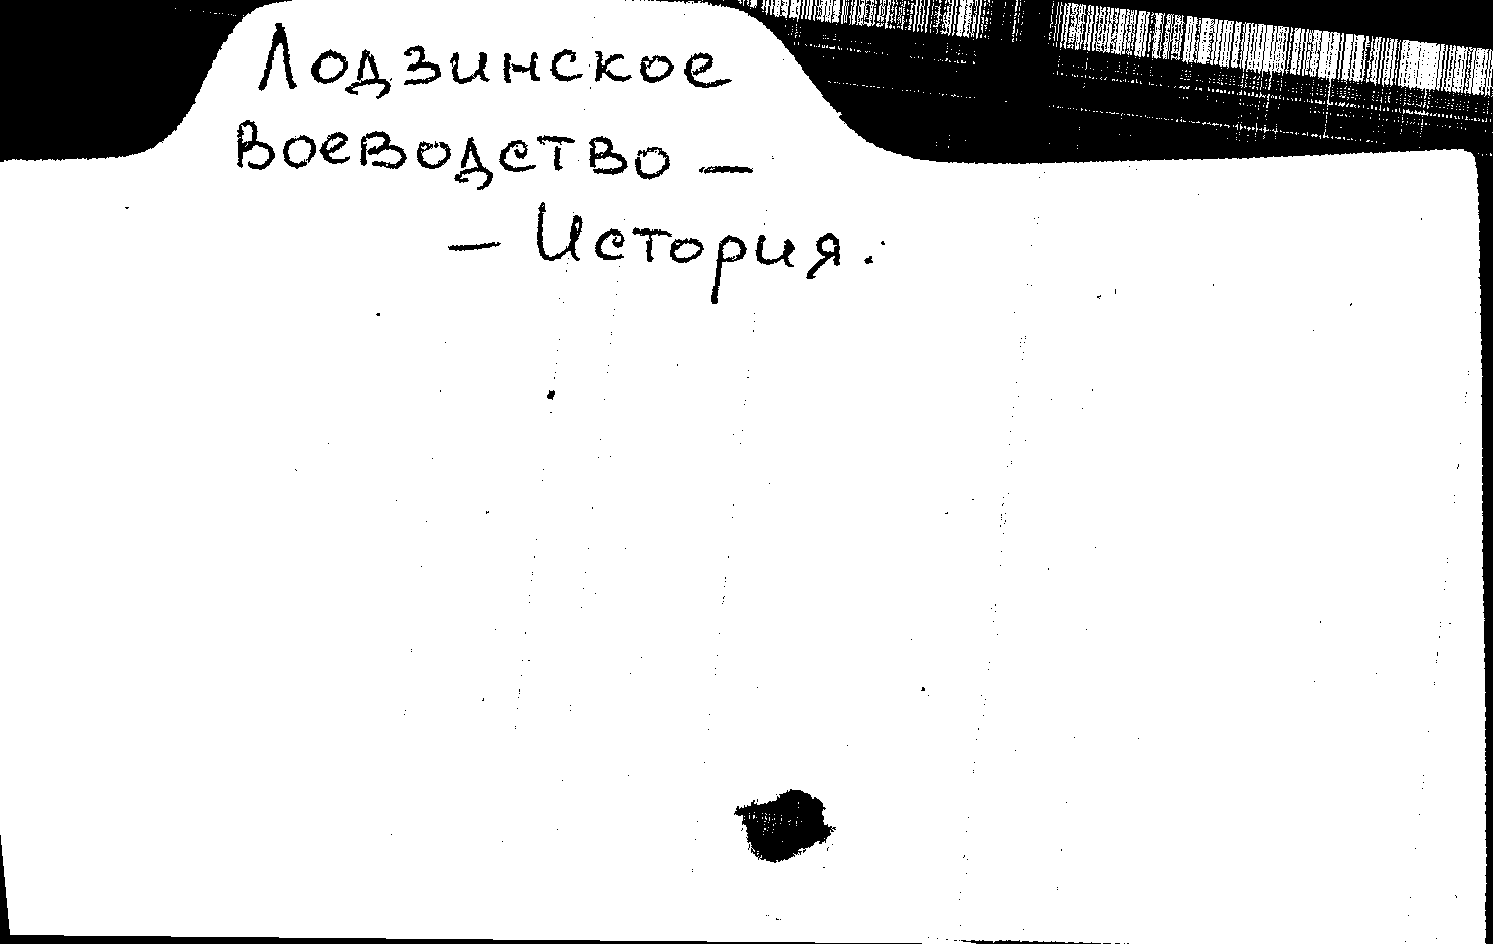 Лодзинское
воеводство —
— История.